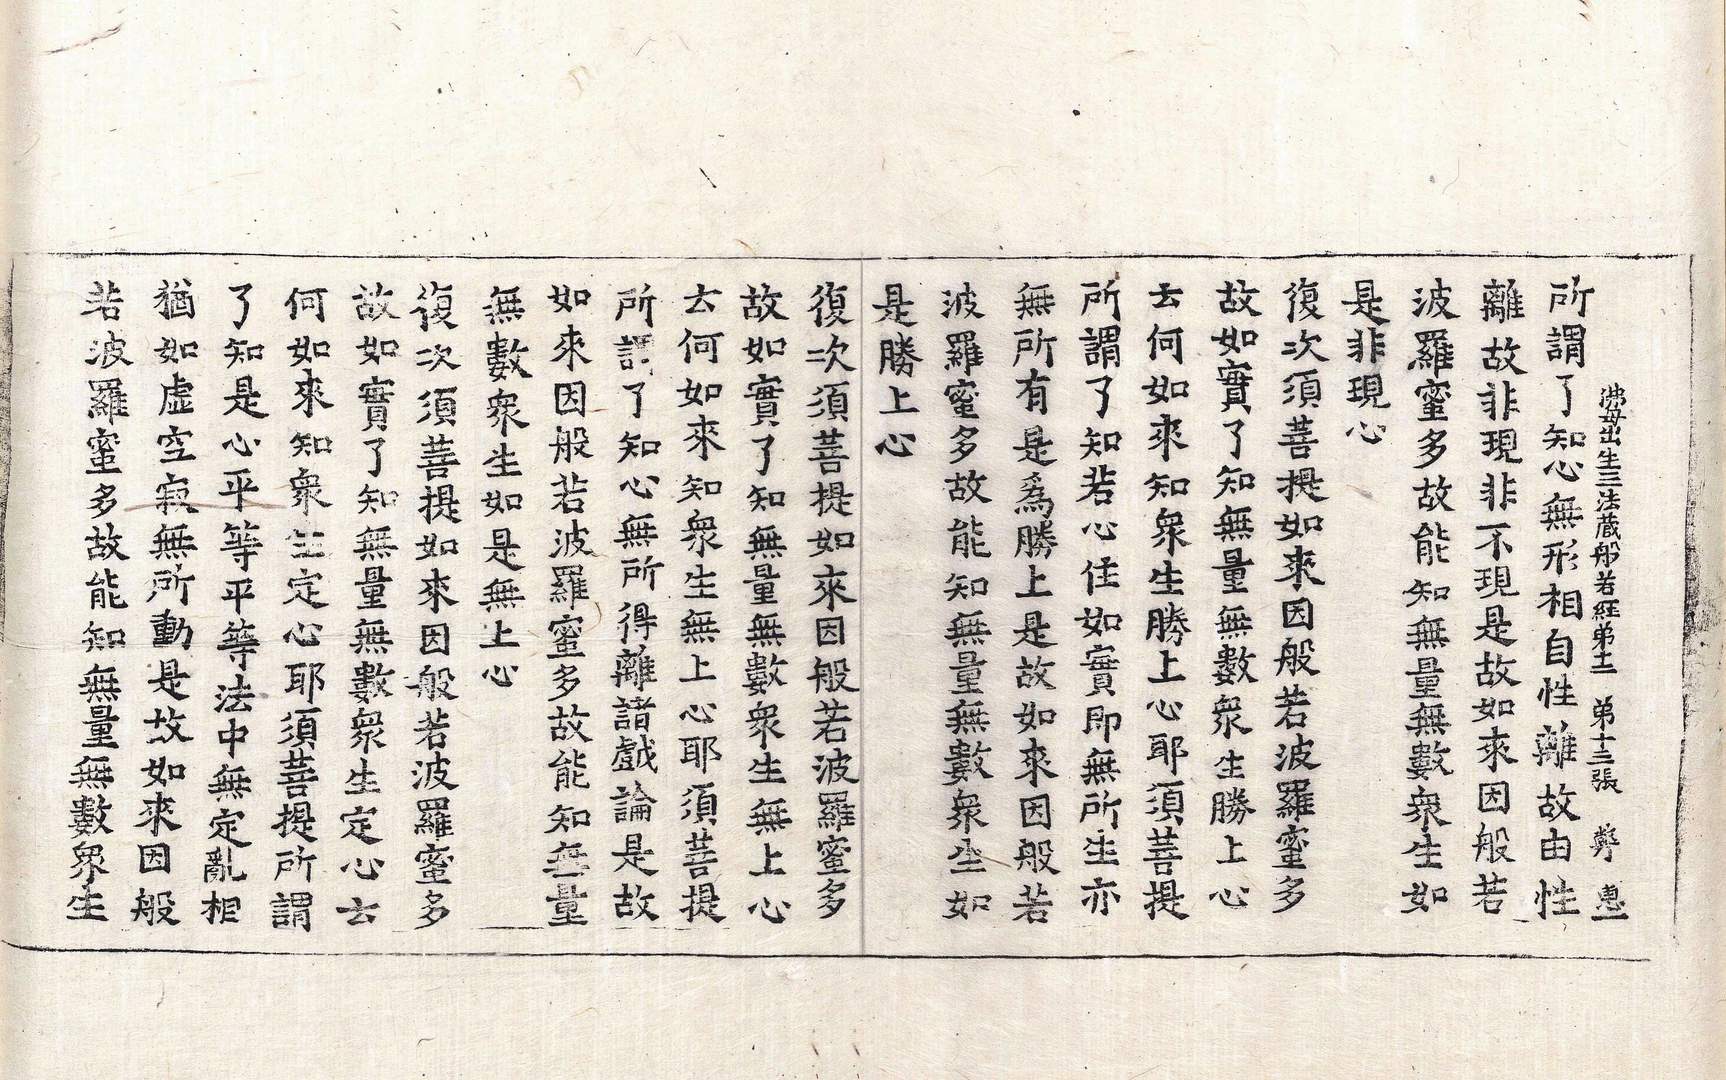 佛母出生三法蔵般若経弟十二　弟十三張　惠一
所謂了知心無形相自性離故由性
離故非現非不現是故如來因般若
波羅蜜多故能知無量無數衆生如
是非現心
復次須菩提如來因般若波羅蜜多
故如實了知無量無數衆生勝上心
云何如來知衆生勝上心耶須菩提
所謂了知若心住如實即無所生亦
無所有是爲勝上是故如來因般若
波羅蜜多故能知無量無數衆生如
是勝上心
復次須菩提如來因般若波羅蜜多
故如實了知無量無數衆生無上心
云何如來知衆生無上心耶須菩提
所謂了知心無所得離諸戲論是故
如來因般若波羅蜜多故能知無量
無數衆生如是無上心
復次須菩提如來因般若波羅蜜多
故如實了知無量無數衆生定心云
何如來知衆生定心耶須菩提所謂
了知是心平等平等法中無定亂相
猶如虛空寂無所動是故如來因般
若波羅蜜多故能知無量無數衆生